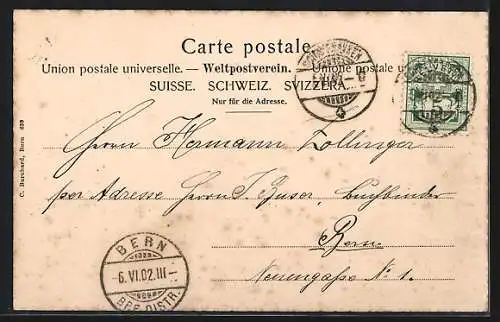 Carte postale.
Union postale universelle. — Weltpostverein. — Unione postale u
SUISSE. SCHWEIZ. SVIZZERA.
Nur für die Adresse.
C. Burckard, Bern 639
Herrn Hermann Zollinger
per Adresse Herrn J. Buser, Buchbinder
Bern
Neuengasse No 1.
BERN
-6.VI.02.III-
BRF.DISTR.